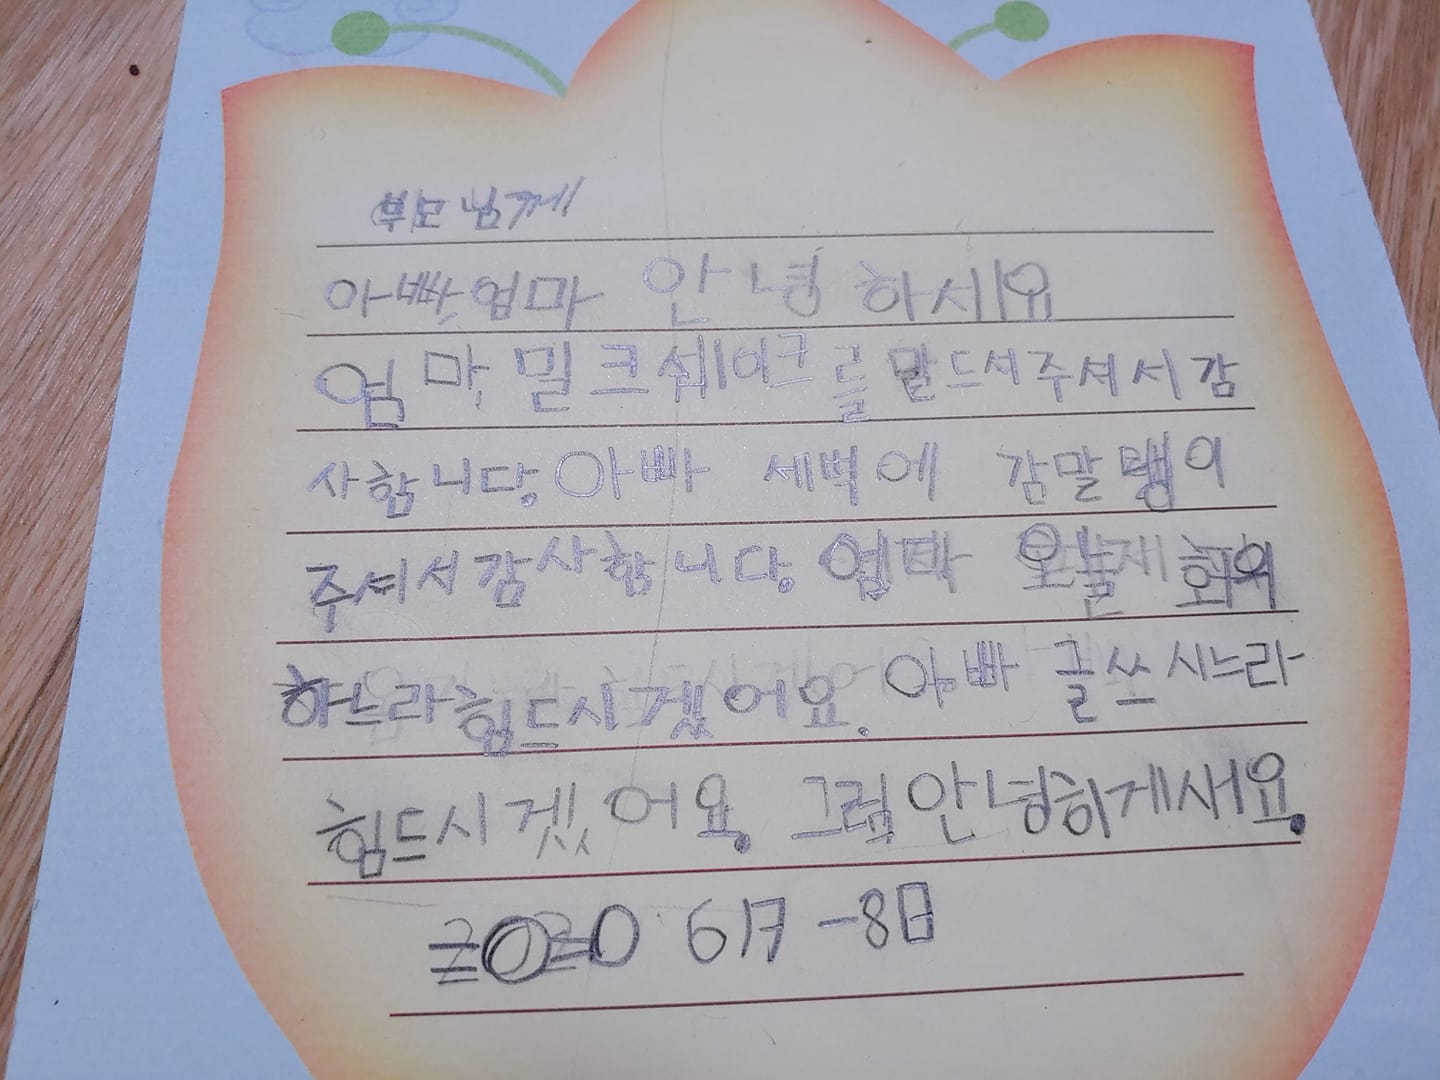 부모님께
아빠, 엄마 안녕하세요
엄마, 밀크쉐이크를 만드셔주셔서 감
사합니당, 아빠 세벽에 감말랭이
주셔서 감사합니당 엄마 오늘 회의
하느라 힘드시겠어요. 아빠 글쓰시느라
힘드시겠어요. 그럼 안녕히게세요.
2020 6 17 -8日